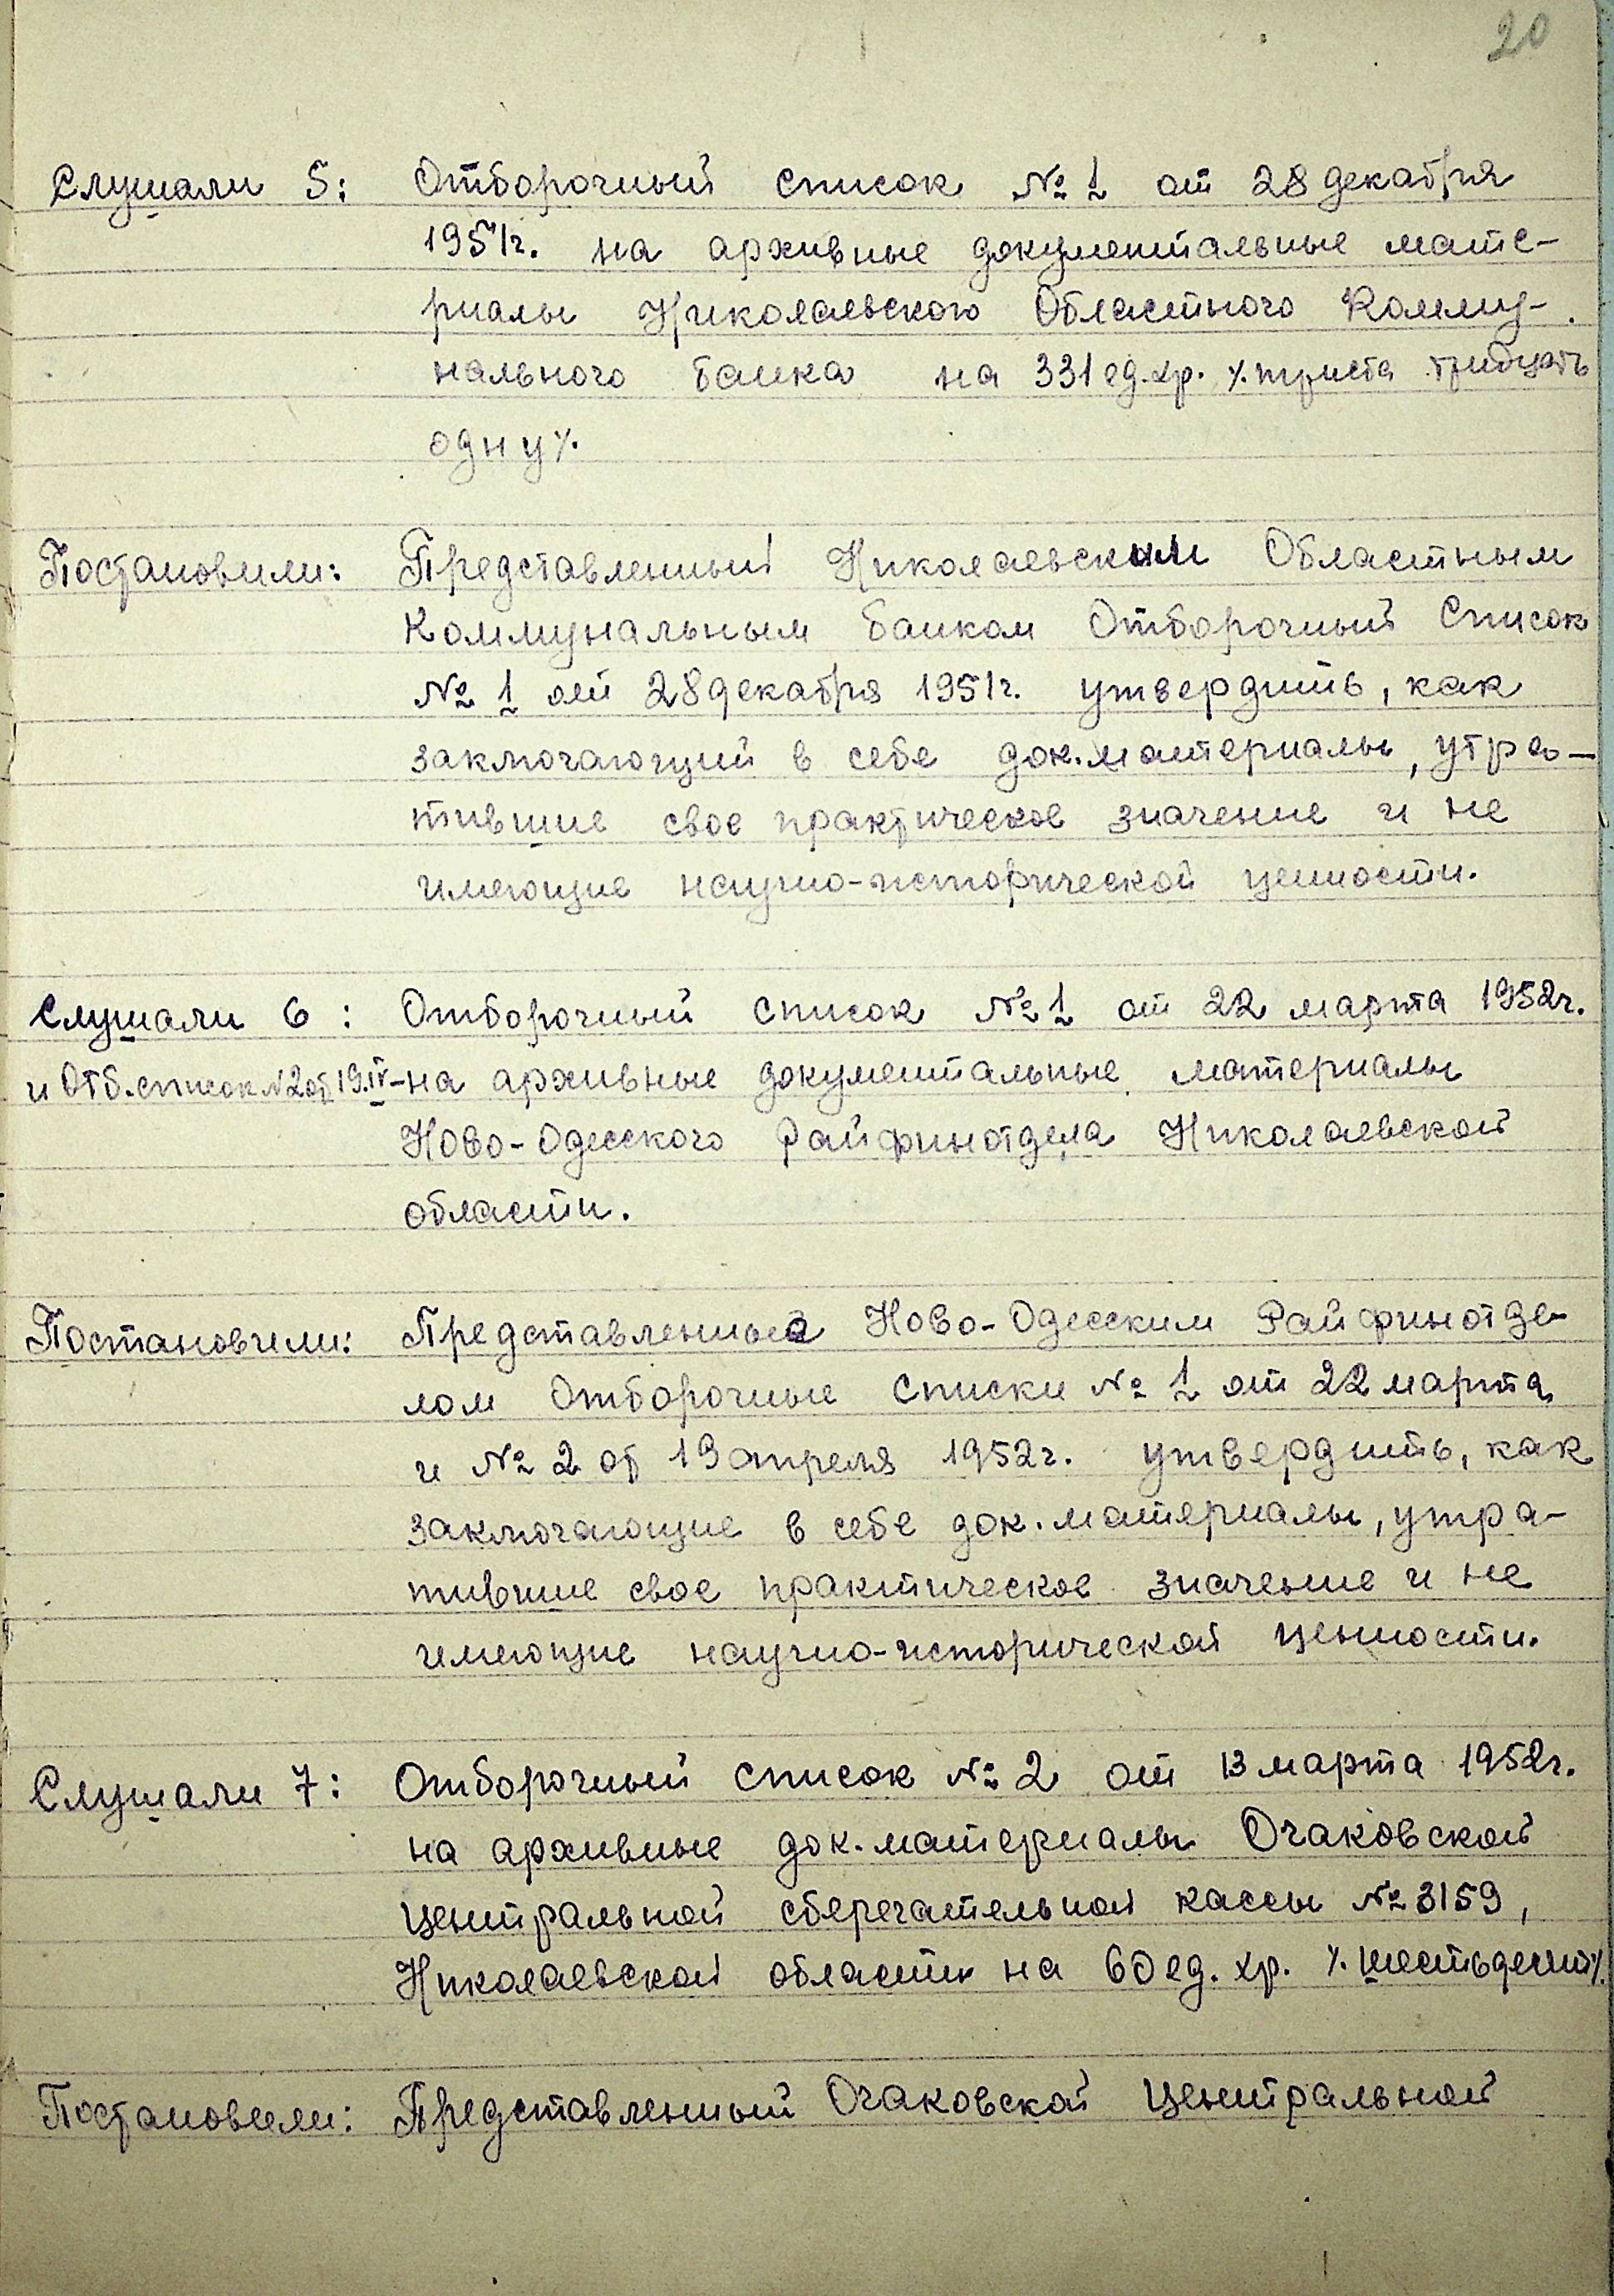 20
Слушали 5: Отборочный список № 1 от 28 декабря
1951г. на архивные документальные мате-
риалы Николаевского Областного Комму-
нального банка на 331 ед.хр. ٪триста тридцать
одну٪.
Постановили: Представленный Николаевским Областным
Коммунальным банком Отборочный Список
№ 1 от 28 декабря 1951г. утвердить, как
заключающий в себе док.материалы, утра-
тившие свое практическое значение и не
имеющие научно-исторической ценности.
Слушали 6: Отборочный список № 1 от 22 марта 1952г.
и Отб.список №2 от 19.IV-на архивные документальные материалы
Ново-Одесского Райфинотдела Николаевской
области.
Постановили: Представленные Ново-Одесским Райфинотде-
лом Отборочные списки № 1 от 22 марта
и № 2 от 19 апреля 1952г. утвердить, как
заключающие в себе док.материалы, утра-
тившие свое практическое значение и не
имеющие научно-исторической ценности.
Слушали 7: Отборочный список № 2 от 13 марта 1952г.
на архивные док.материалы Очаковской
центральной сберегательной кассы № 3159,
Николаевской области на 60 ед.хр. ٪шестьдесят٪.
Постановили: Представленный Очаковской Центральной